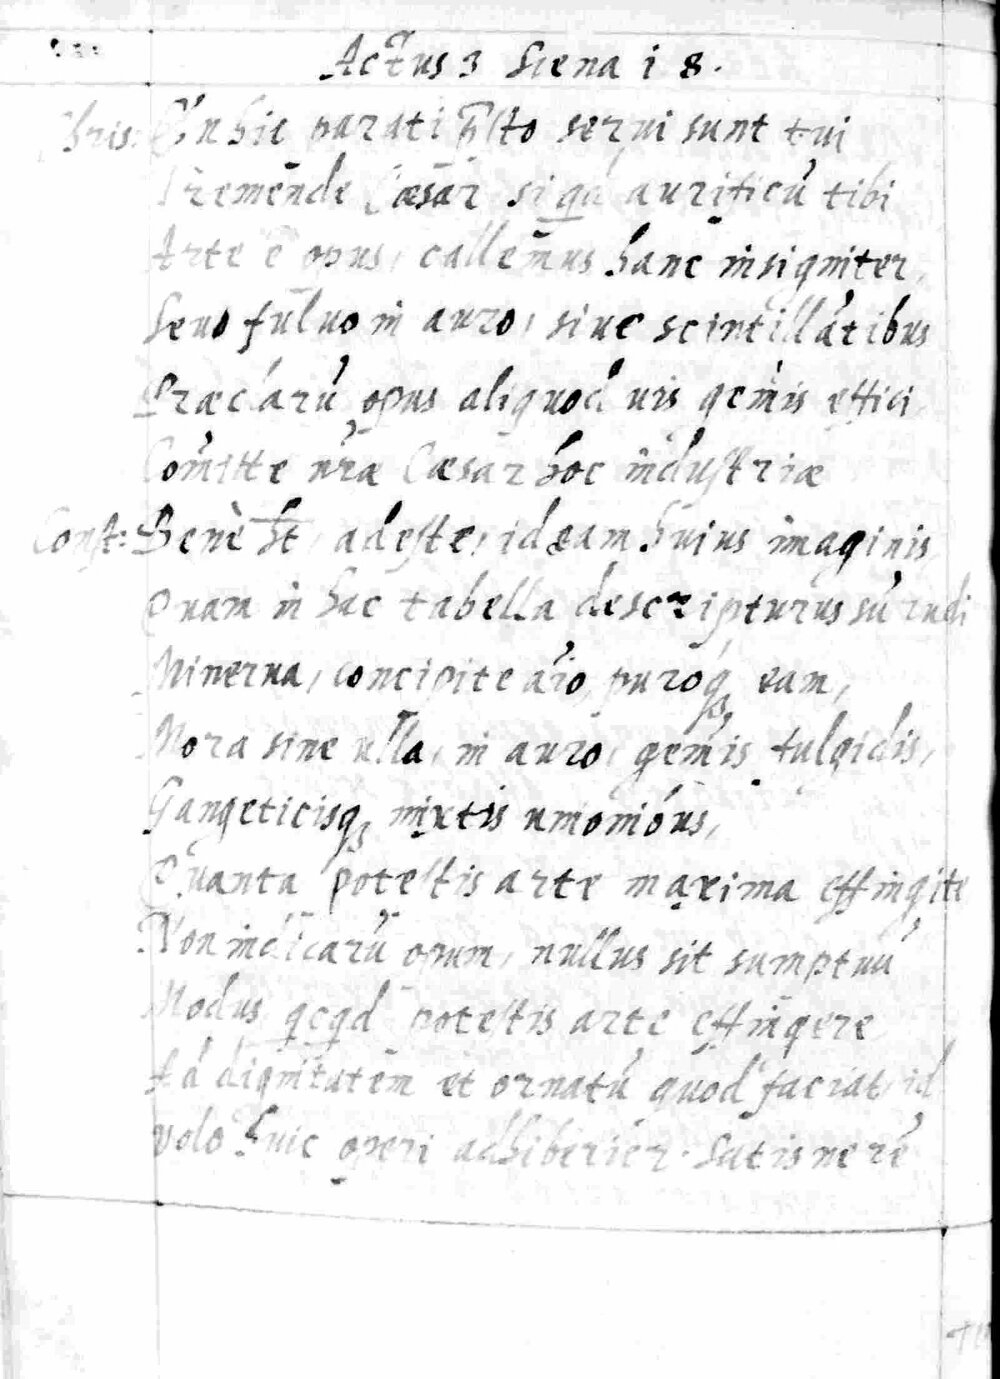 Actus 3 Scena 18.
Chris: En hic parati p̄sto serui sunt tui
Tremende Cæsar si qd aurificū tibi
Arte ē opus, callem̄us hanc insigniter,
Seuo fuluo in auro, siue scintillātibus
Præclarū opus aliquod uis gem̄is effici
Com̄itte nr̄æ Cæsar hoc industriæ
Const: Benè ht, adeste, ideam huius imaginis,
Quam in hac tabella descripturus sū rudi
Minerua, concipite aīo, puroq₃ eam,
Mora sine ulla, in auro, gem̄is fulgidis,
Gangeticisq₃ mixtis unionibus,
Quanta potestis arte maxima effingite
Non indicarū opum, nullus sit sumptuū
Modus, qcqd potestis arte effingere
Ad dignitatem et ornatū quod faciat, id
volo huic operi adhiberier. Satisne rē